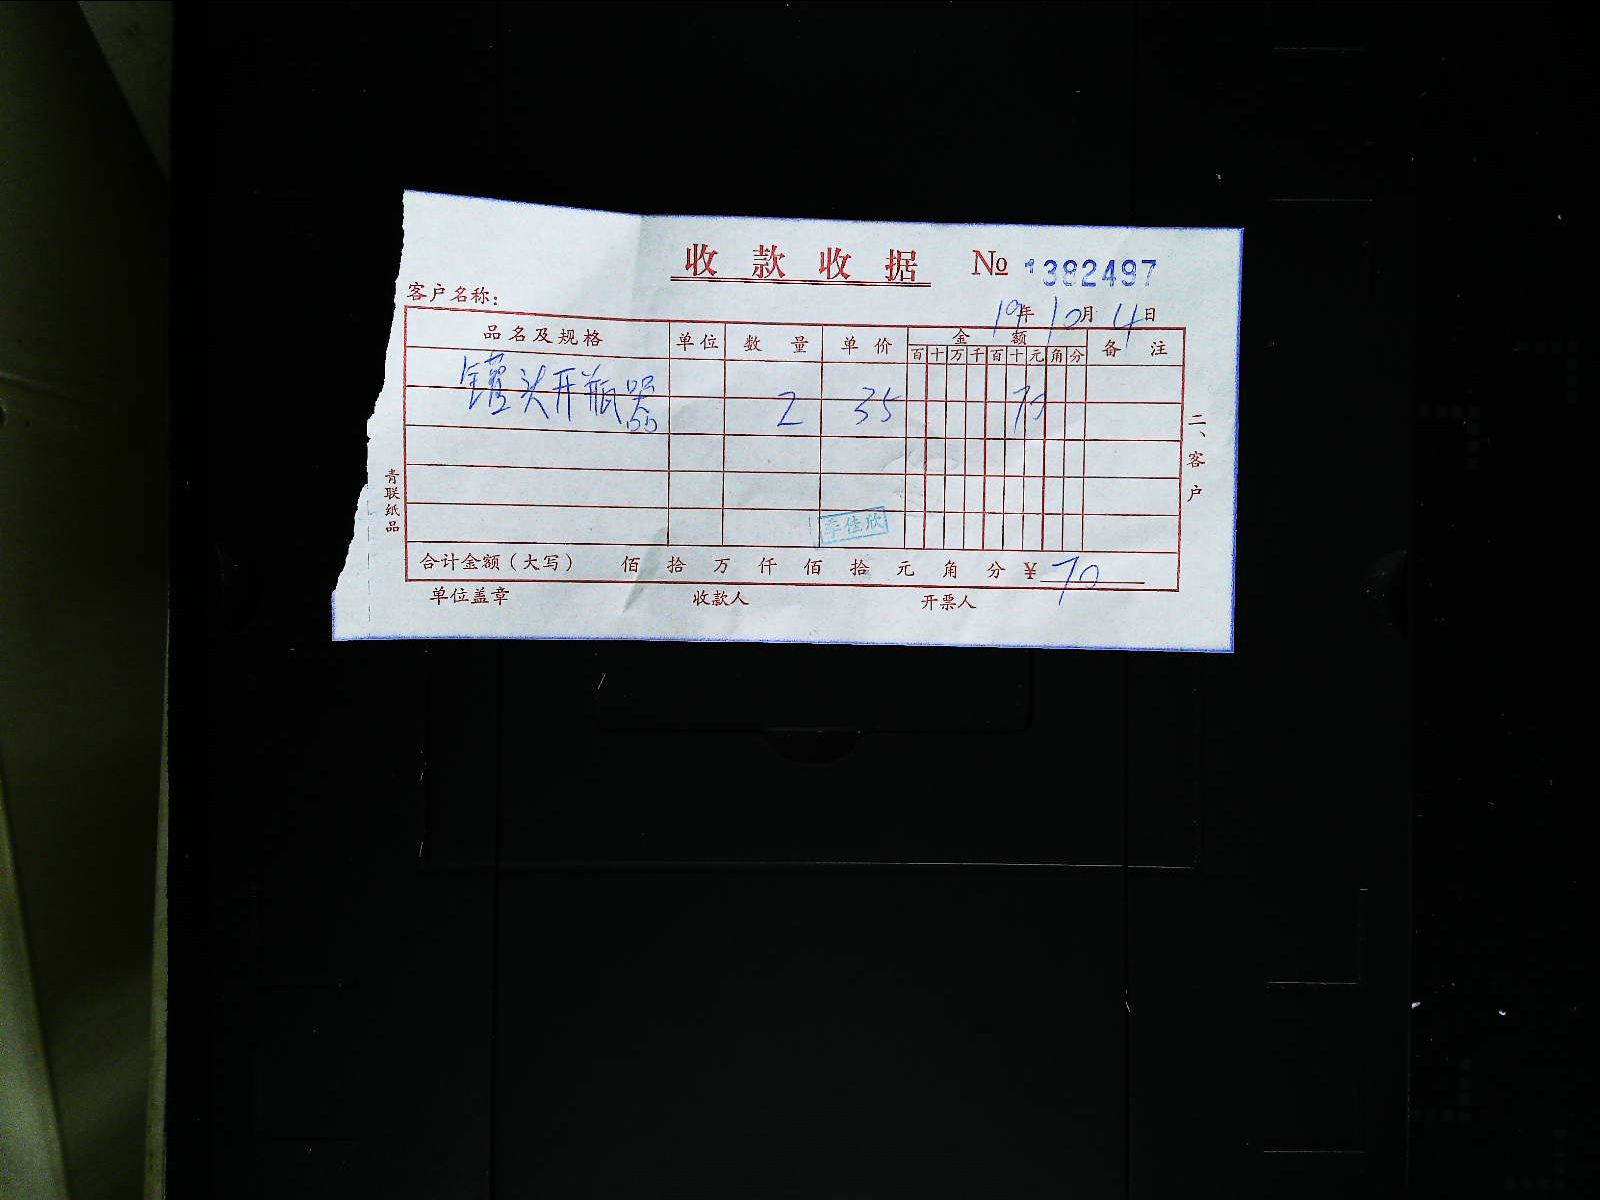 收款收据 № 1382497
客户名称：
19年10月4日
品名及规格 单位 数量 单价 金额 备注
百 十 万 千 百 十 元 角 分
罐头开瓶器 2 35 70
二、客户
青联纸品
李佳欣
合计金额（大写） 佰 拾 万 仟 佰 拾 元 角 分 ¥70
单位盖章 收款人 开票人